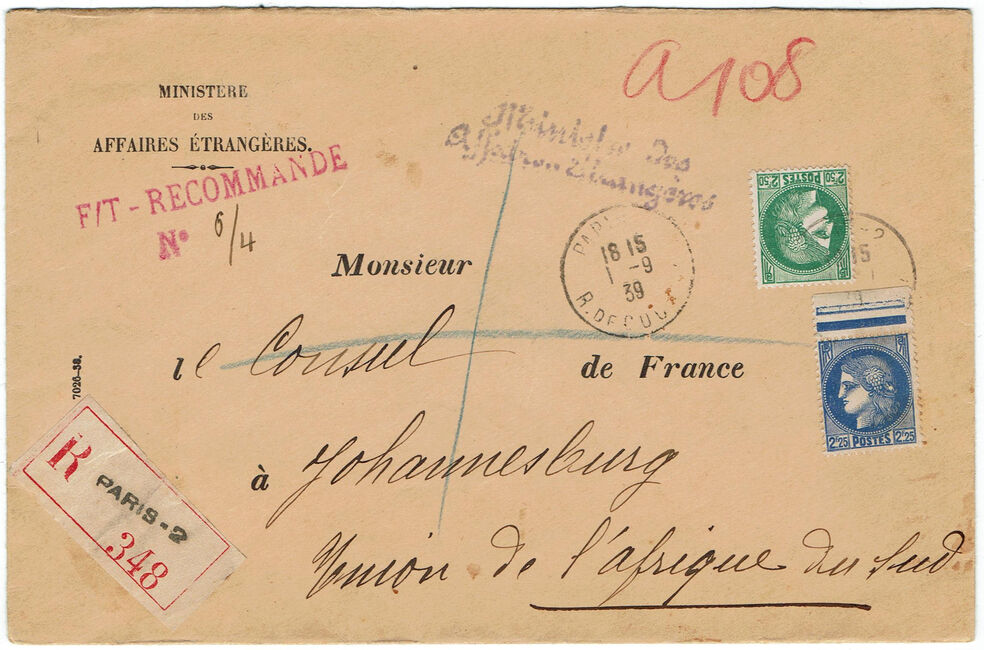 A 108
MINISTERE
DES
AFFAIRES ÉTRANGÈRES.
Ministère Des
Affaires Étrangères
F/T - RECOMMANDE
N° 6/4
2,50 POSTES 2,50
PARIS
18 15
1 -9
39
R. DE
15
Monsieur
le Consul de France
2,25 POSTES 2,25
7026-38.
à Johannesburg
Union de l'afrique du Sud
R PARIS-2
348